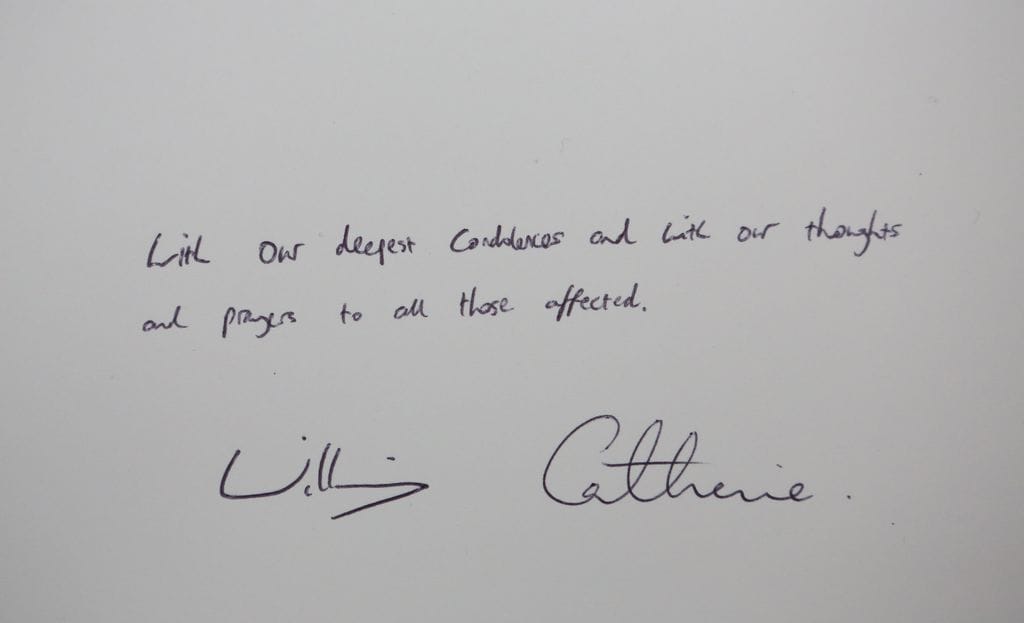 With our deepest condolences and with our thoughts
and prayers to all those affected.
William Catherine.